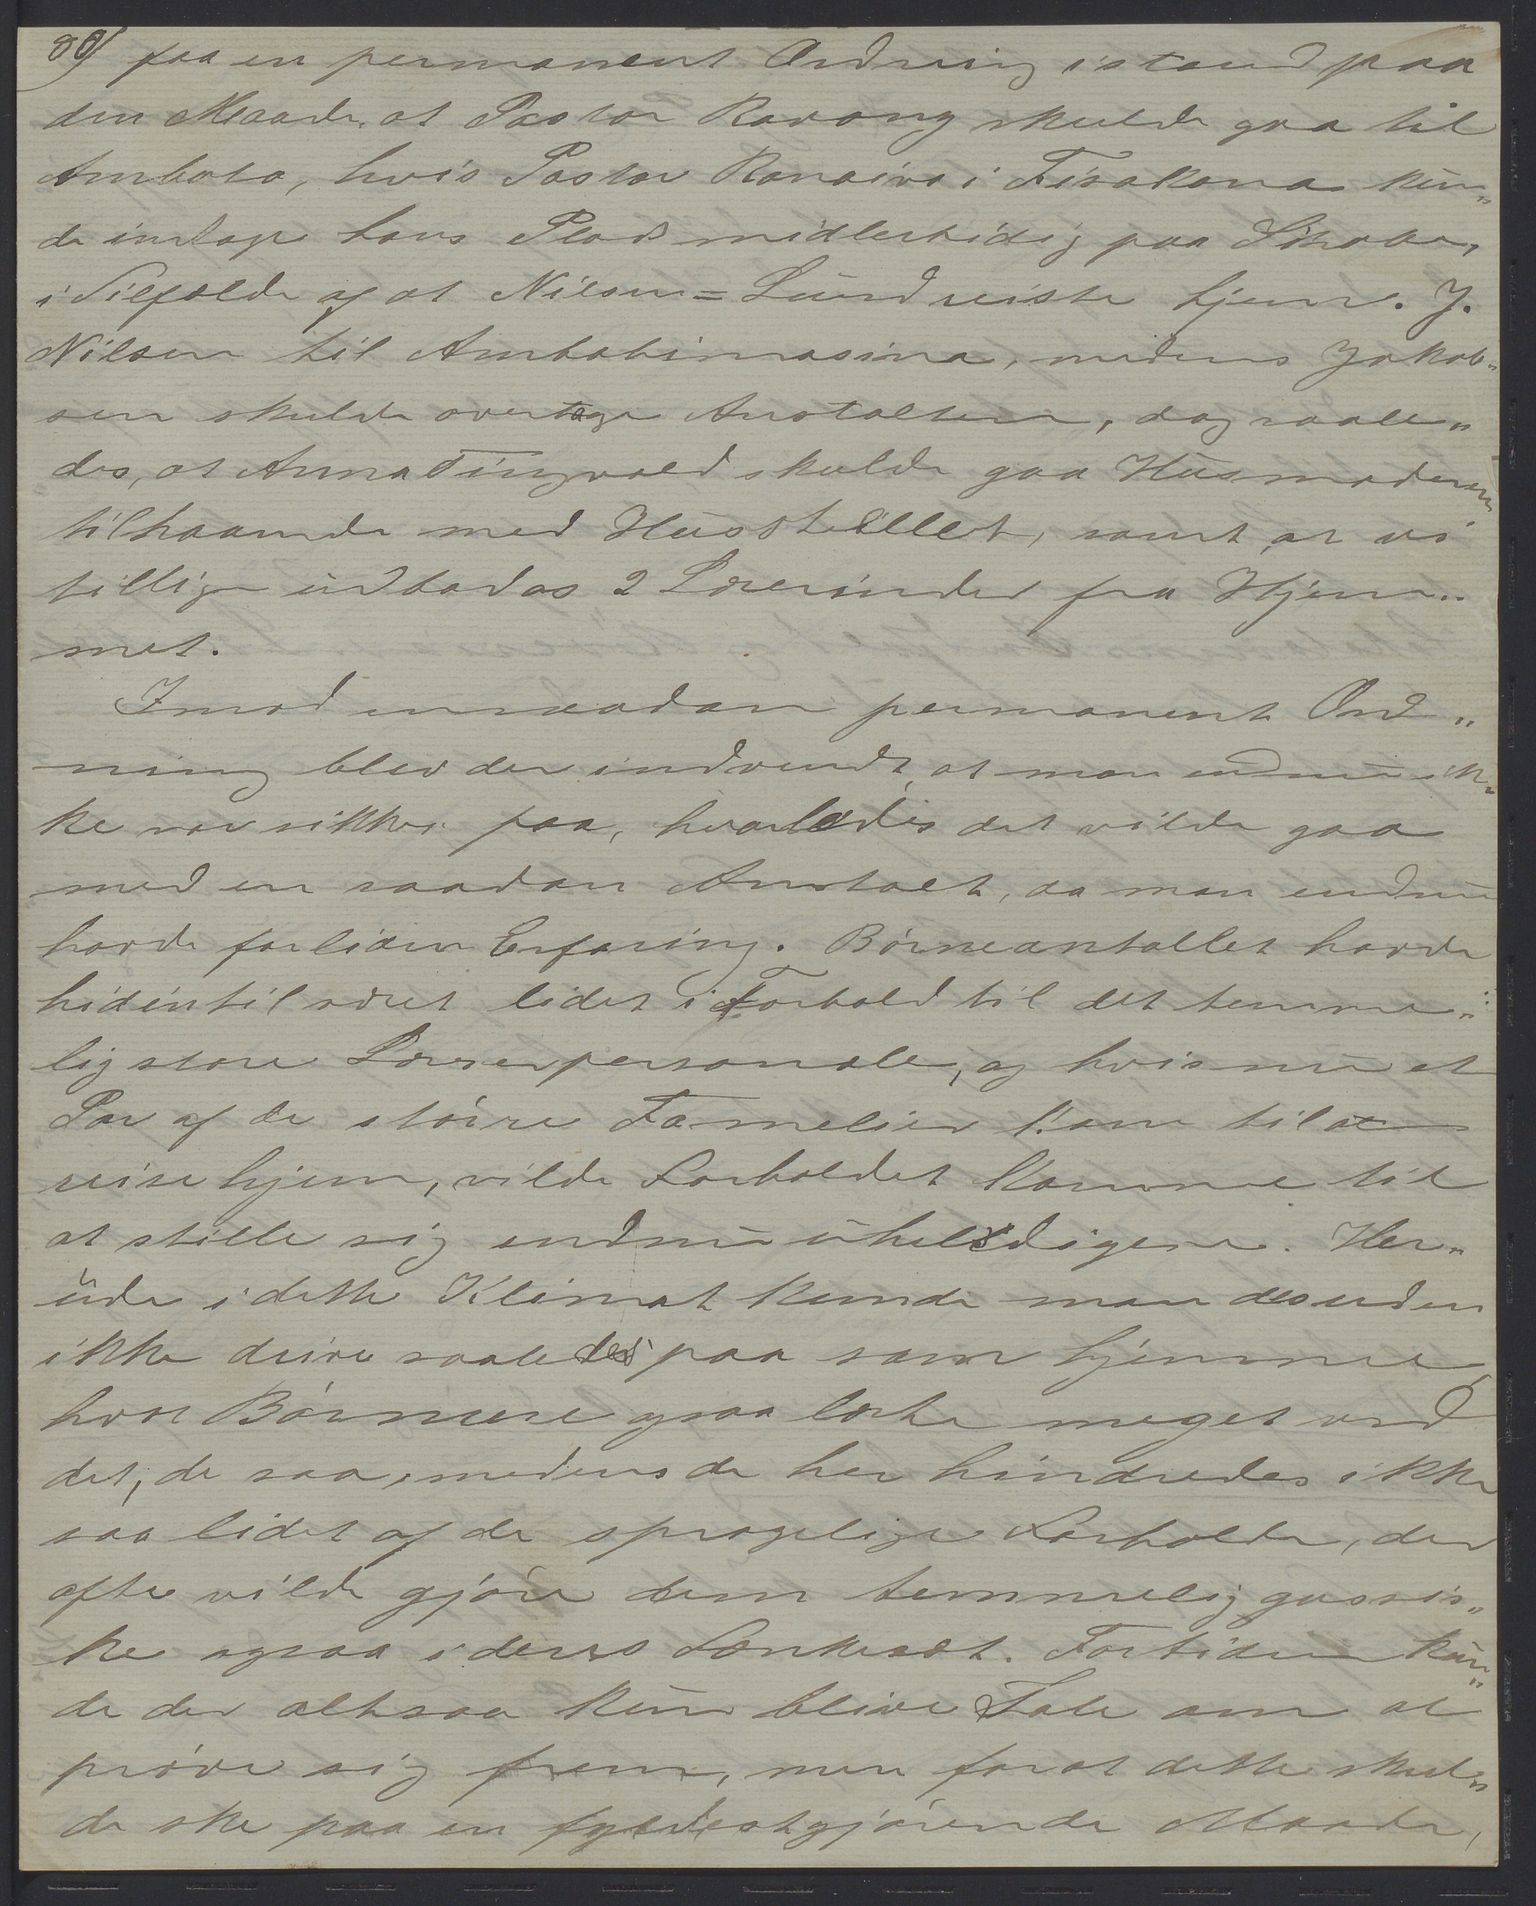 80) faa en permanent Ordning istand paa
den Maade, at Pastor Rosaas skulde gaa til
Ambato, hvis Pastor Ranaivo i Fisakana kun„
de indtage hans Plads midlertidig paa Sihara,
i Tilfælde af at Nilsen=Lund reiste hjem. J.
Nilsen til Ambatinasina, medens Jakob„
sen skulde overtage Anstalten, dog saale„
des, at Anna Tingvold skulde gaa Husmoderen
tilhaande med Husstellet, samt at vi
tillige udbad os 2 Lærerinder fra Hjem„
met.
Imod en saadan permanent Ord„
ning blev der indvendt, at man endnu ik„
ke var sikker paa, hvorledes det vilde gaa
med en saadan Anstalt, da man endnu
havde for liden Erfaring. Børneantallet havde
hidintil været lidet i Forhold til det temme„
lig store Lærerpersonale, og hvis nu et
Par af de større Familier kom til at
reise hjem, vilde Forholdet komme til
at stille sig endnu uheldigere. Her„
ude i dette Klimat kunde man desuden
ikke drive saaledes paa som hjemme,
hvor Børnene ogsaa lærte meget ved
det, de saa, medens de her hindredes ikke
saa lidet af de sprogelige Forholde, der
ofte vilde gjøre dem temmelig gassis„
ke ogsaa i deres Tænkesæt. Fortiden kun„
de der altsaa kun blive Tale om at
prøve sig frem, men for at dette skul„
de ske paa en fyldestgjørende Maade,